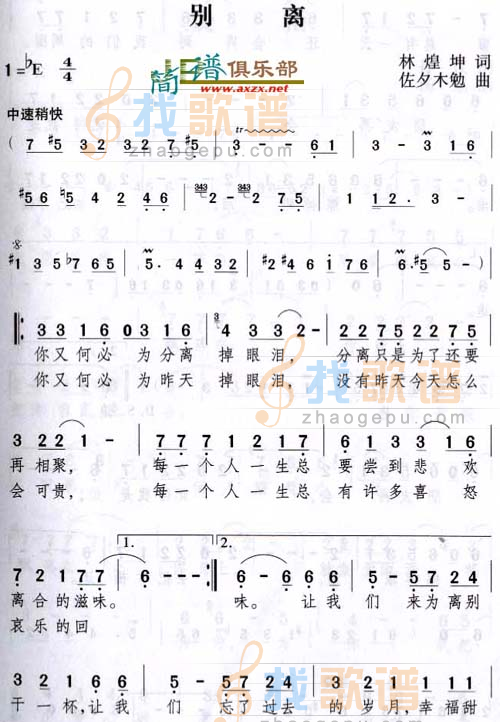 别 离
1=♭E 4/4
简谱俱乐部
www.axzx.net
林煌坤 词
佐夕木勉 曲
中速稍快
找歌谱
zhaogepu.com
( 7 #5 32 32 7 #5 | 3 - - 61 | 3 - 3 16 |
#56 ♮5 4 2 46 | 343 2 - 343 2 75 | 1 12. 3 - |
#1 35 ♭765 | 5. 4432 | #2 #46 1 76 | 6. #5 5 - )
33 16 03 16 | 4 33 2 - | 22 75 22 75 |
你又何必 为分离 掉眼泪, 分离只是为了还要
你又何必 为昨天 掉眼泪, 没有昨天今天怎么
找歌谱
zhaogepu.com
3 22 1 - | 77 71 21 17 | 61 33 1 6 |
再相聚, 每一个人一生总 要尝到悲 欢
会可贵, 每一个人一生总 有许多喜 怒
1. 2.
7 21 77 | 6 - - - | 6 - 6 66 | 6 5 57 24 |
离合的滋味。 味。 让我 们 来为离别
哀乐的回
3 21 66 6 | 5 57 24 | 3 2 16 66 |
干一杯,让我 们 忘了过去 的 岁月,幸福甜
找歌谱
zhaogepu.com